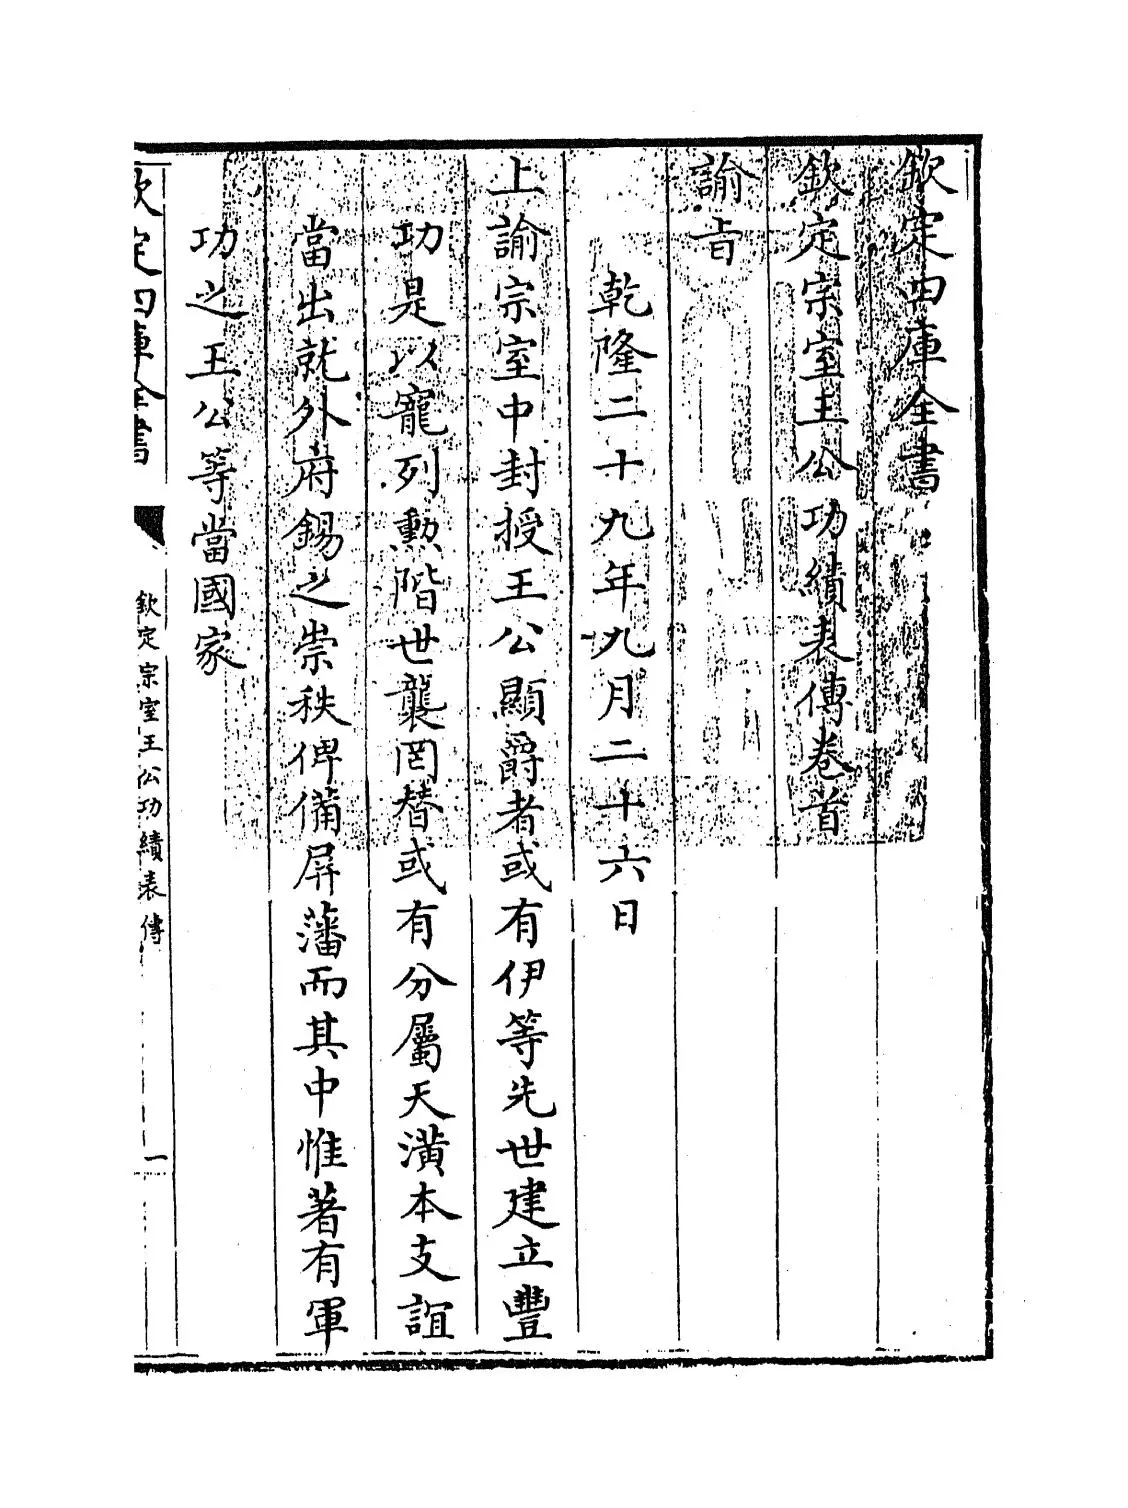 欽定四庫全書
欽定宗室王公功績表傳卷首
諭旨
乾隆二十九年九月二十六日
上諭宗室中封授王公顯爵者或有伊等先世建立豐
功是以寵列勲階世襲罔替或有分屬天潢本支誼
當出就外府錫之崇秩俾備屏藩而其中惟著有軍
功之王公等當國家
欽定四庫全書
欽定宗室王公功績表傳
一